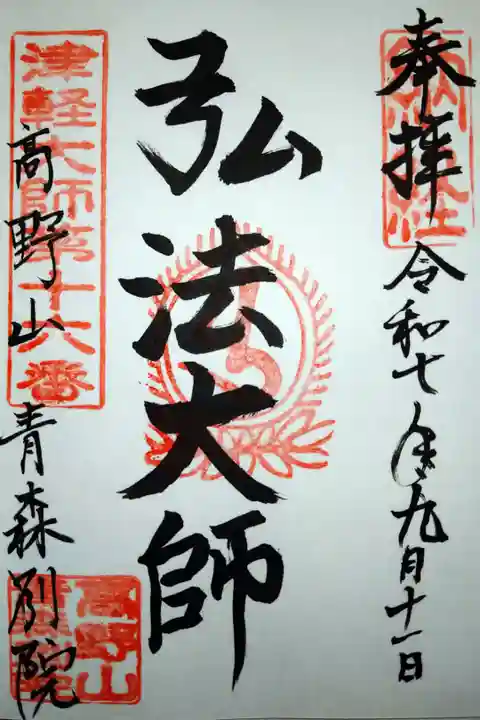 奉拝
令和七年九月十一日
弘法大師
津軽大師第十六番
高野山
青森別院
高野山